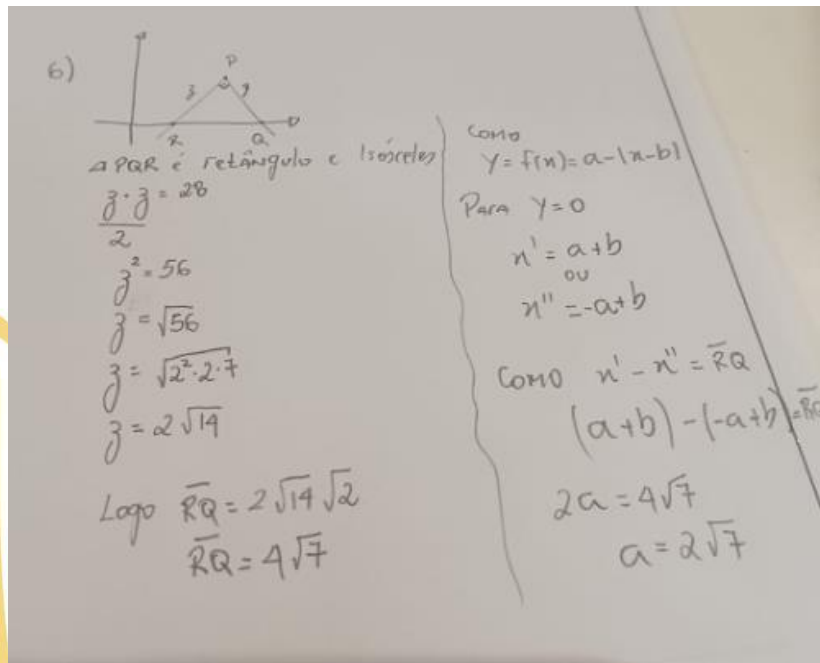 6)
P
z z
R Q
△ PQR é retângulo e Isósceles
z·z/2 = 28
z² = 56
z = √56
z = √2²·2·7
z = 2√14
Logo RQ = 2√14 √2
RQ = 4√7
Como
y = f(x) = a - |x-b|
Para y=0
x' = a+b
ou
x'' = -a+b
Como x' - x'' = RQ
(a+b) - (-a+b) = RQ
2a = 4√7
a = 2√7